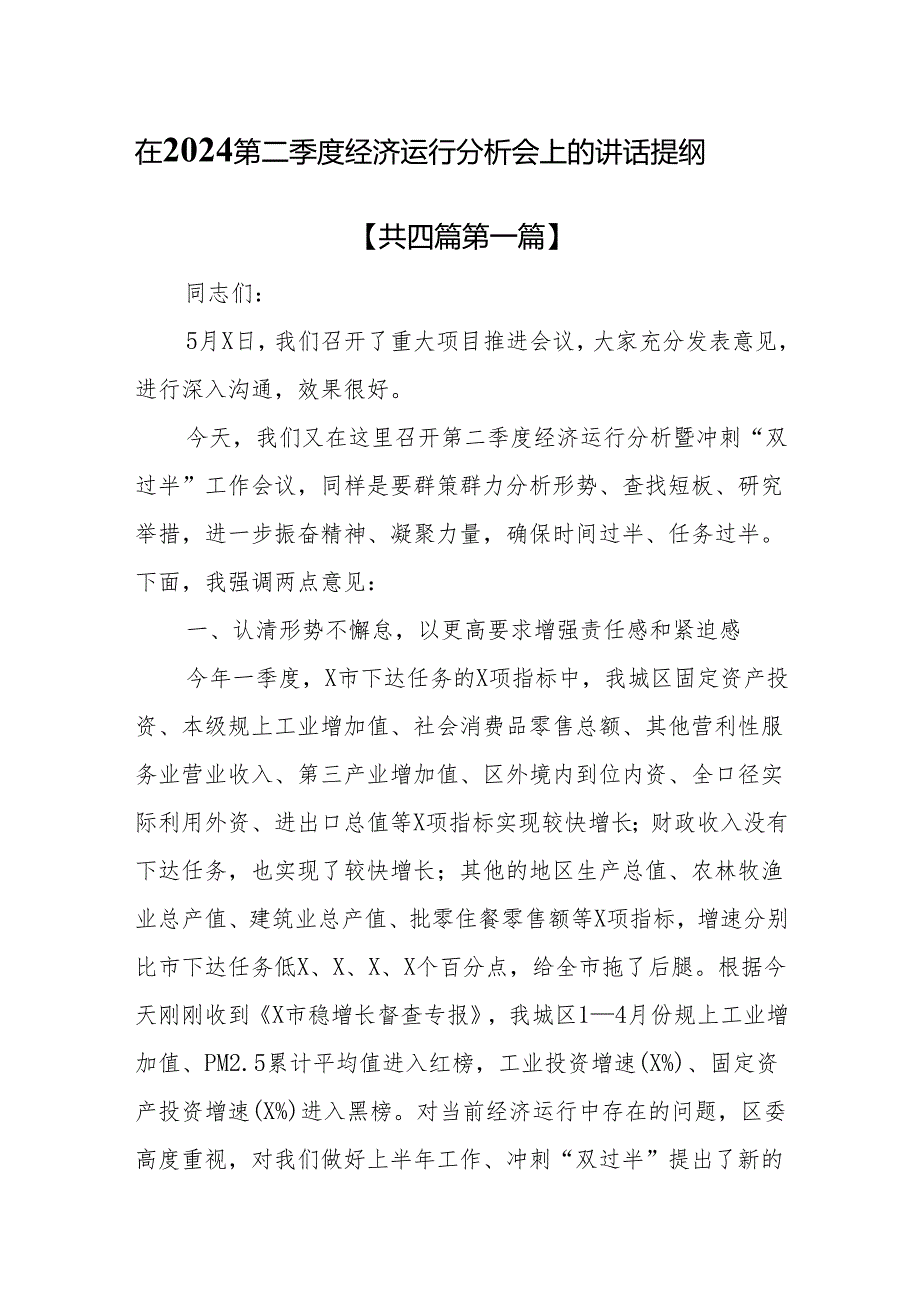 在2024第二季度经济运行分析会上的讲话提纲
【共四篇第一篇】
同志们：
5月X日，我们召开了重大项目推进会议，大家充分发表意见，
进行深入沟通，效果很好。
今天，我们又在这里召开第二季度经济运行分析暨冲刺“双
过半”工作会议，同样是要群策群力分析形势、查找短板、研究
举措，进一步振奋精神、凝聚力量，确保时间过半、任务过半。
下面，我强调两点意见：
一、认清形势不懈怠，以更高要求增强责任感和紧迫感
今年一季度，X市下达任务的X项指标中，我城区固定资产投
资、本级规上工业增加值、社会消费品零售总额、其他营利性服
务业营业收入、第三产业增加值、区外境内到位内资、全口径实
际利用外资、进出口总值等X项指标实现较快增长；财政收入没有
下达任务，也实现了较快增长；其他的地区生产总值、农林牧渔
业总产值、建筑业总产值、批零住餐零售额等X项指标，增速分别
比市下达任务低X、X、X、X个百分点，给全市拖了后腿。根据今
天刚刚收到《X市稳增长督查专报》，我城区1—4月份规上工业增
加值、PM2.5累计平均值进入红榜，工业投资增速(X%)、固定资
产投资增速(X%)进入黑榜。对当前经济运行中存在的问题，区委
高度重视，对我们做好上半年工作、冲刺“双过半”提出了新的